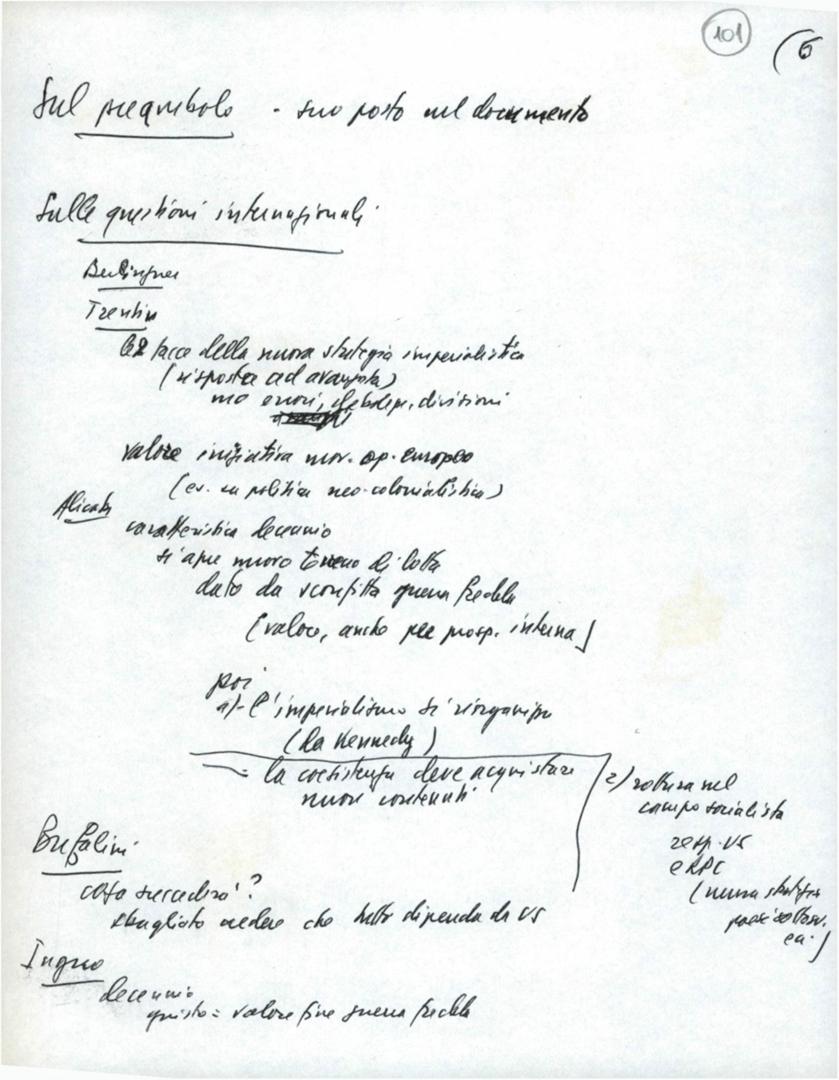 101
(6
Sul preambolo - suo posto nel documento
Sulle questioni internazionali
Berlinguer
Trentin
le tacce della nuova strategia imperialistica
(risposta ad avanzata)
ma errori, debolezze, divisioni
valore iniziativa mov. op. europeo
(es. su politica neo-colonialistica)
Alicata
caratteristica decennio
si apre nuovo terreno di lotta
dato da sconfitta guerra fredda
(valore, anche per prosp. interna)
poi
1)- l'imperialismo si riorganizza
(da Kennedy)
= la coesistenza deve acquistare
nuovi contenuti
2) rottura nel
campo socialista
resp. US
e RPC
(nuova strategia
paesi sottosv.
ec.)
Bufalini
cosa succederà?
sbagliato vedere che tutto dipenda da US
Ingrao
decennio
giusto = valore fine guerra fredda